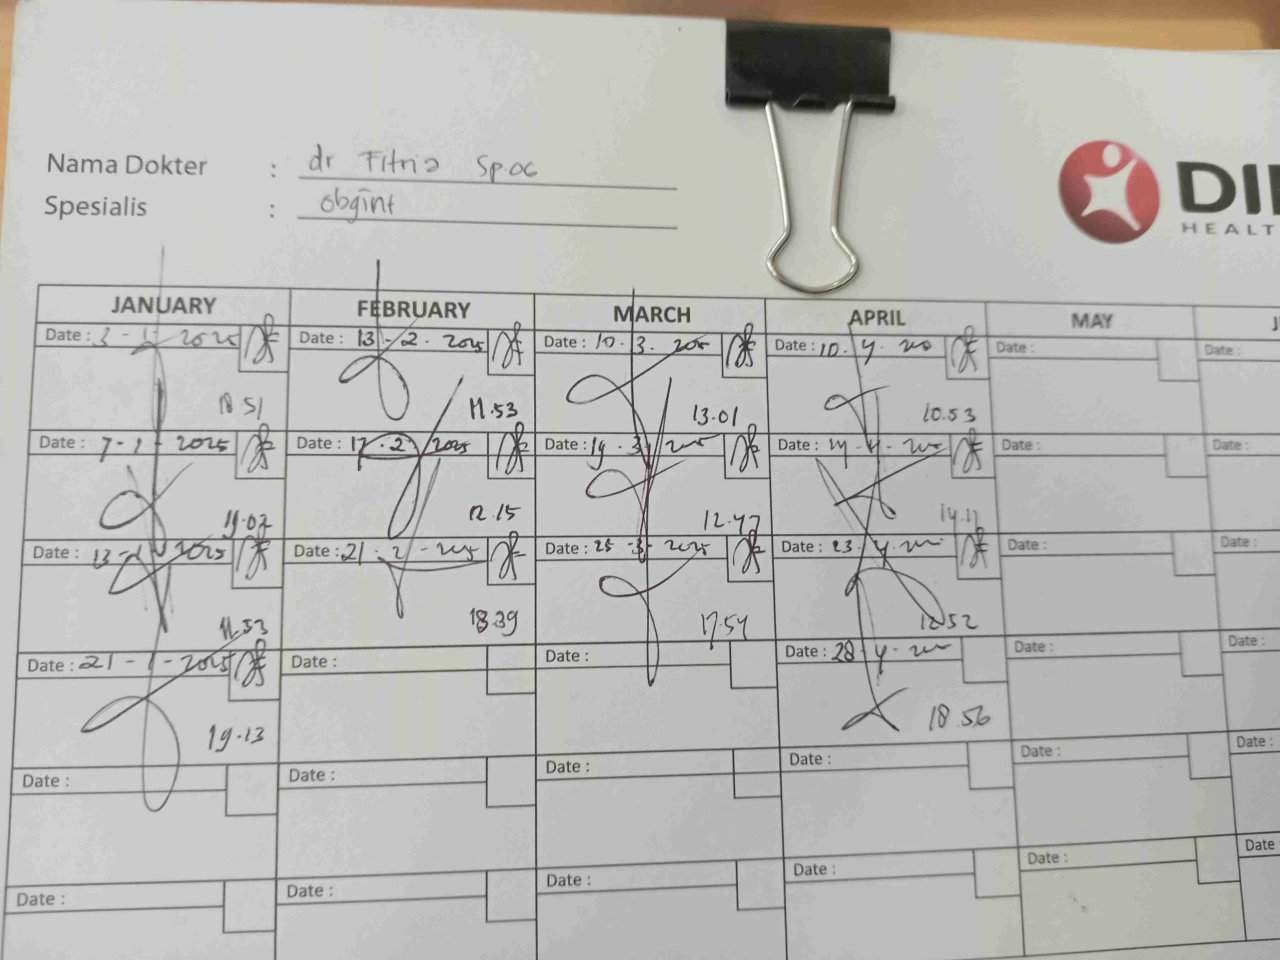 Nama Dokter : dr Fitria Sp.OG
Spesialis : obgint
DI
HEALT
JANUARY FEBRUARY MARCH APRIL MAY J
Date : 3 - 1 - 2025 Date : 13 - 2 - 2025 Date : 10 . 3 . 2025 Date : 10 . 4 . Date : Date :
18.51 11.53 13.01 10.53
Date : 7 - 1 - 2025 Date : 17 . 2 . 2025 Date : 19 . 3 . Date : Date : Date :
19.07 12.15 12.47 14.11
Date : 13 - 1 - 2025 Date : 21 . 2 - 2025 Date : 25 - 3 - 2025 Date : 23 . 4 . Date : Date :
11.53 18.39 17.54
Date : 21 - 1 - 2025 Date : Date : Date : 28 . 4 . Date : Date :
19.13 18.56
Date : Date : Date : Date : Date : Date :
Date : Date : Date : Date : Date : Date